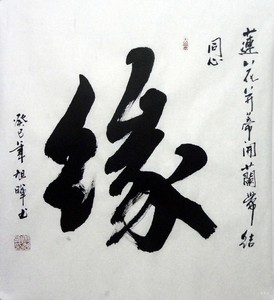 蓮花并蒂開蘭帶結
同心
缘
癸巳年旭暉书